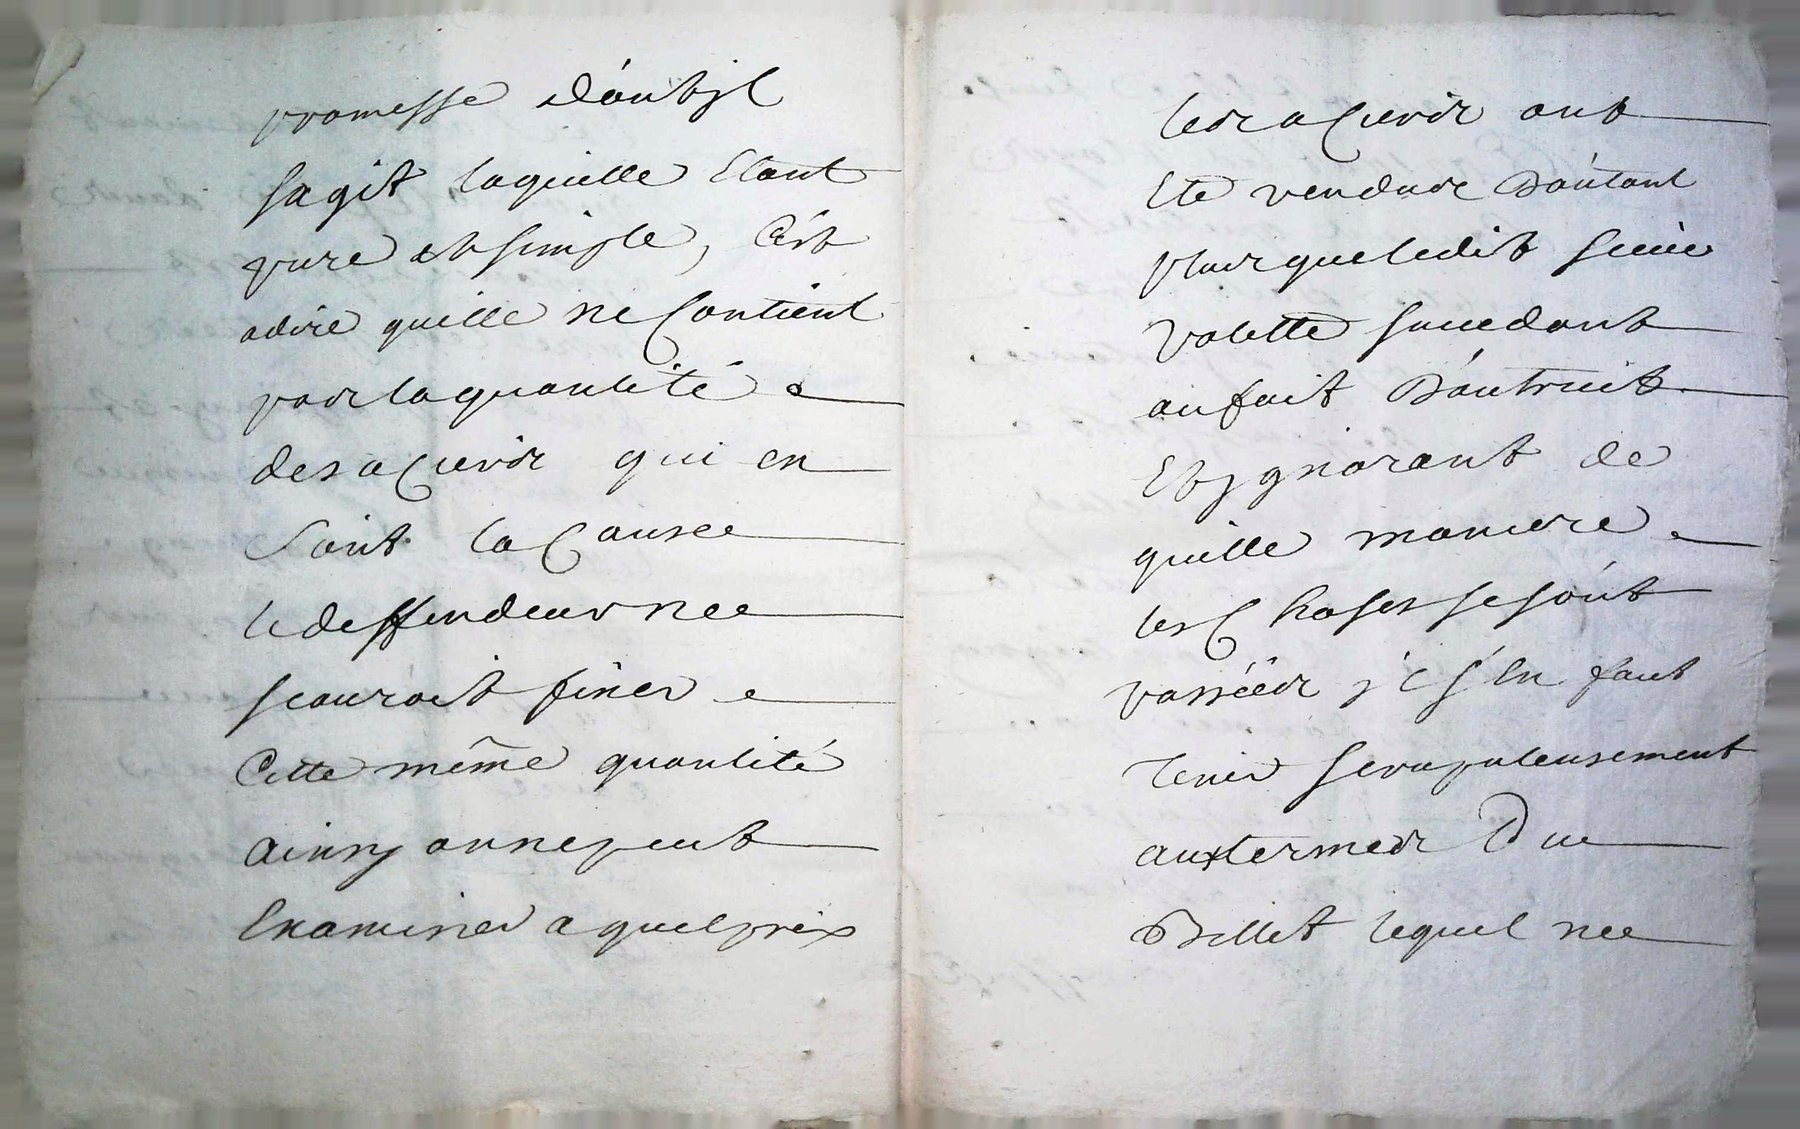 promesse dont jl
sagit laquelle Etant
pure et simple, C'est
adire quelle ne Contient
par la quantité
des aCiers qui en
Sont la Cause
le deffendeur ne
scauroit finer
Cette même quantité
ainsy on ne peut
Examiner a quel prix
les aCiers ont
Eté vendus Dautant
plus que ledit sieur
Valette succedant
au fait D'autruit
Et ygnorant de
quelle maniere
les Choses se sont
passéés jl s'En faut
Tenir scrupuleusement
aux termes Du
Billet lequel ne